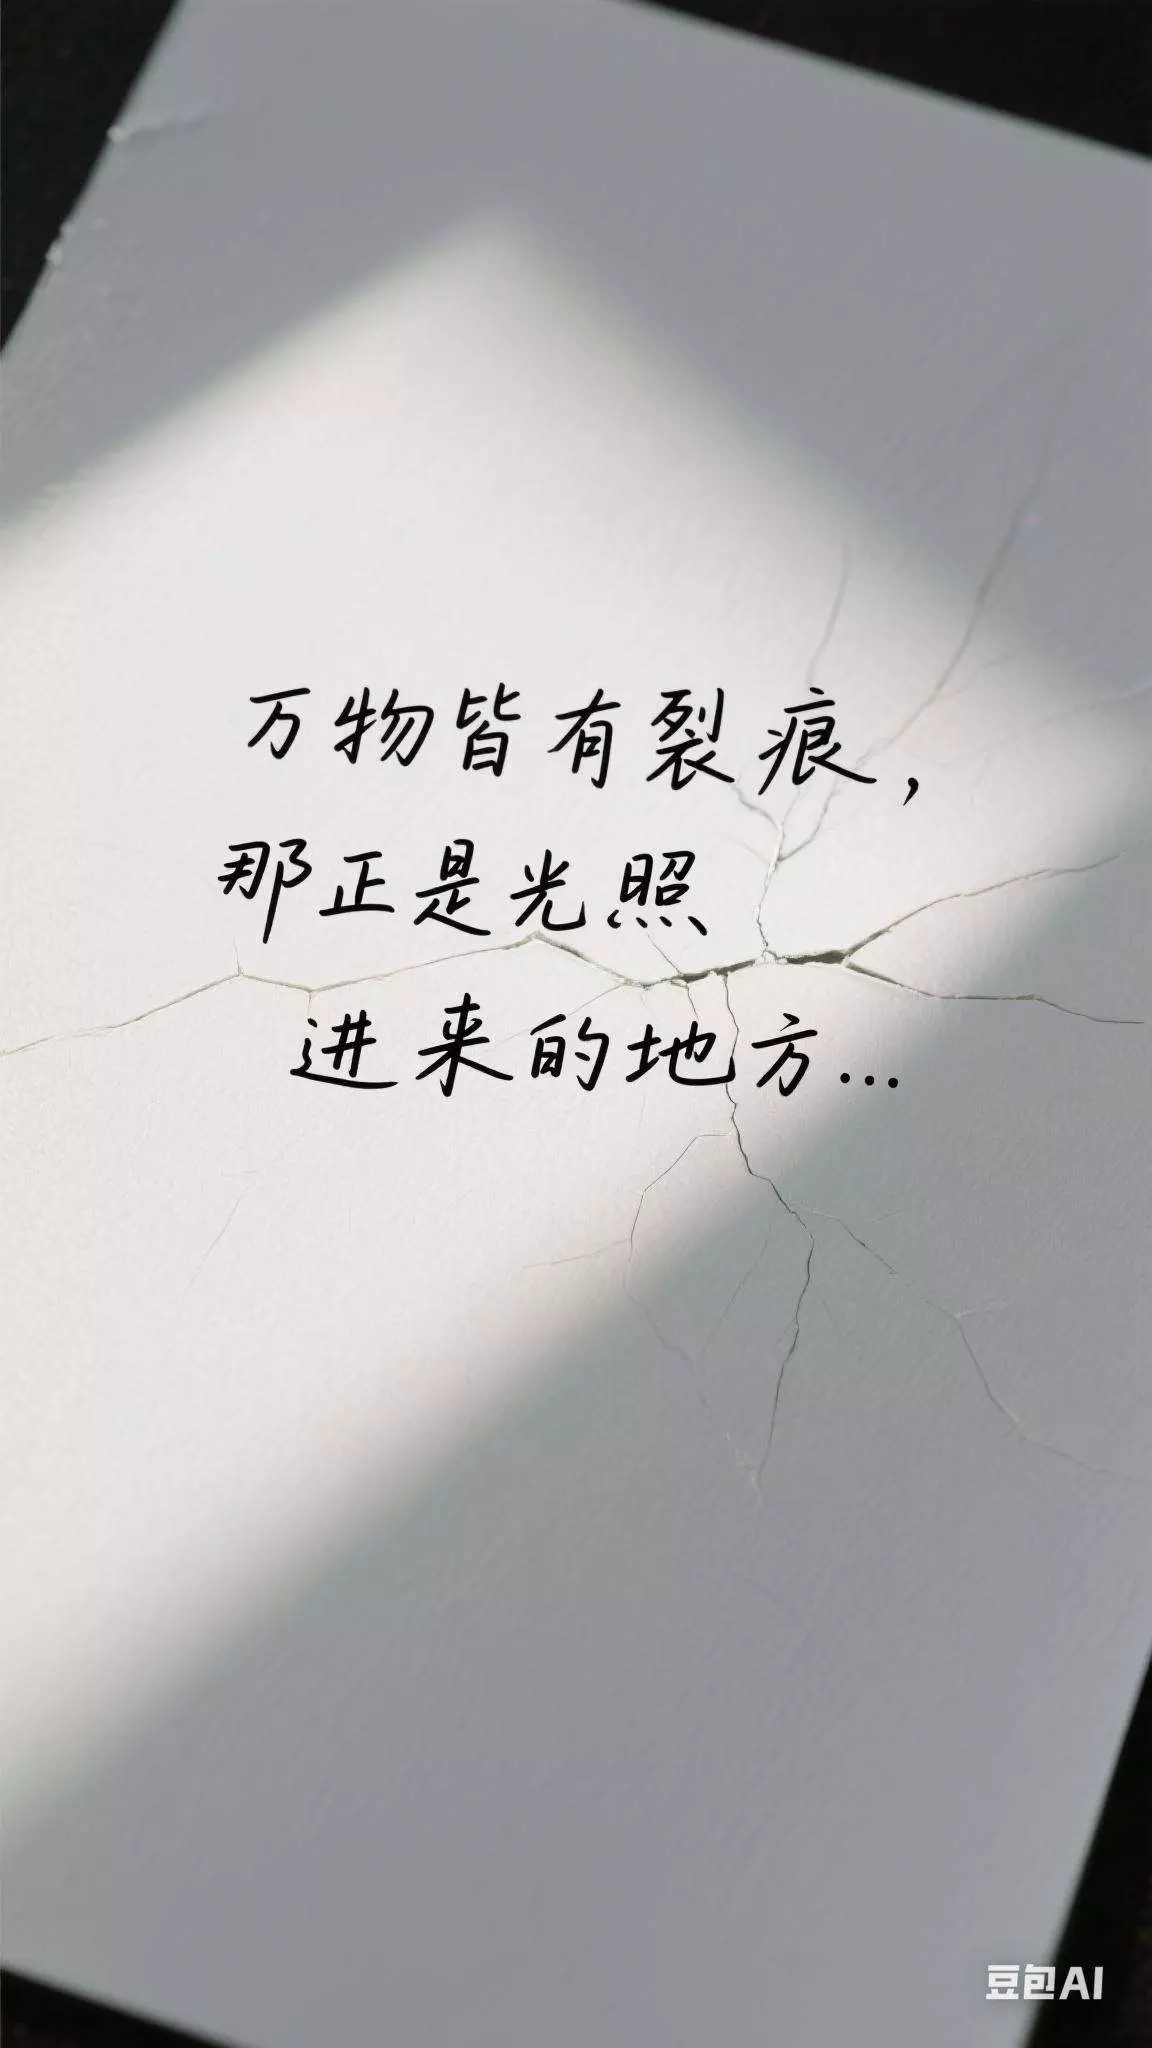 万物皆有裂痕，
那正是光照
进来的地方...
豆包AI